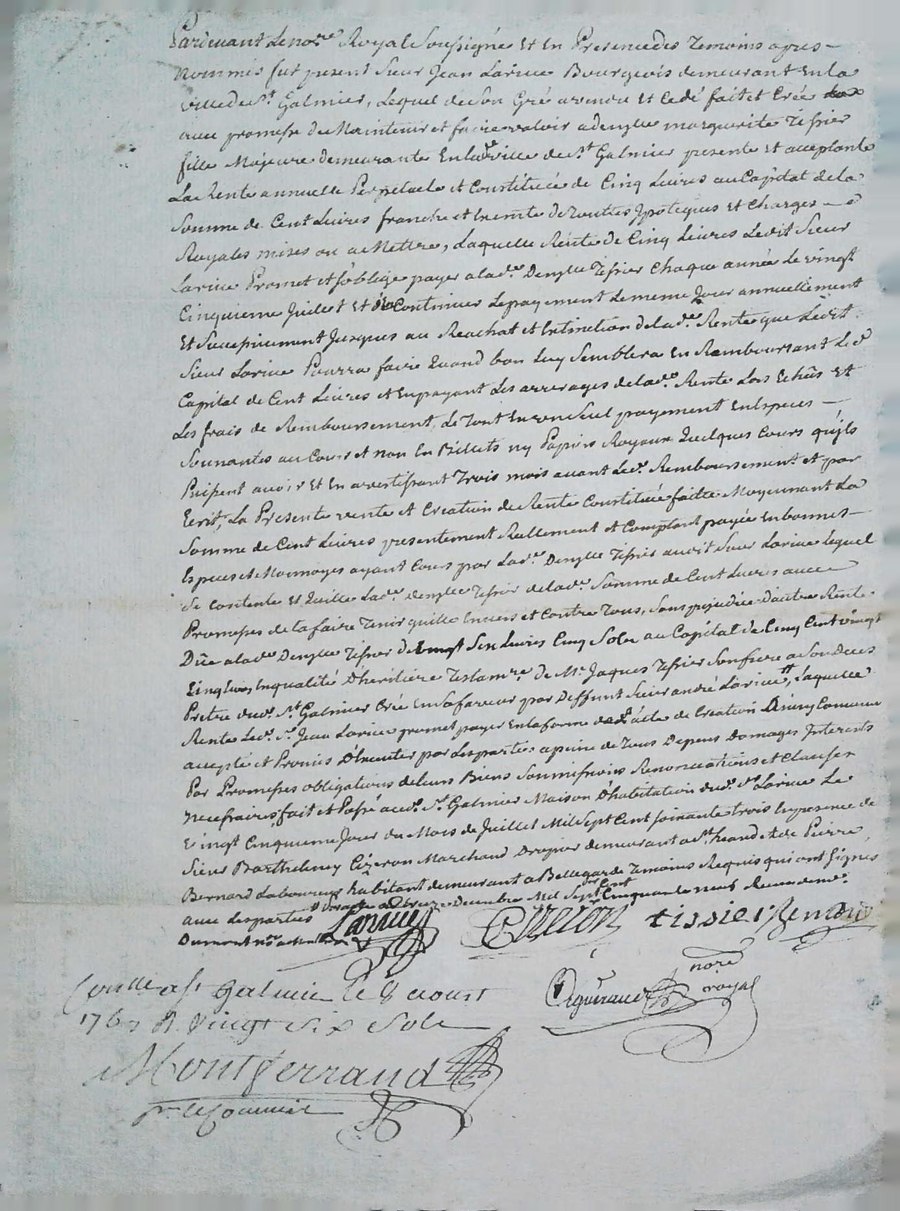 Pardevant Le no.re Royal Soussigné Et En Presence des Temoins apres-
Nommés fut present Sieur Jean Larive Bourgeois demeurant En la
ville de S.t Galmier, Lequel de Son Gré a vendu Et Cedé fait et Crée
avec promesse de Maintenir et faire valoir a dem.lle marguerite Tissier
fille Majeure demeurante En lad. ville de S.t Galmier presente Et acceptante
La Rente annuelle Perpetuele et Constituée de Cinq Livres au Capital de la
Somme de Cent Livres franche et Exempte de Toutes Ypoteques Et Charges
Royales mises ou a Mettre, Laquelle Rente de Cinq Livres Ledit Sieur
Larive Promet et s'oblige payer a lad.e Dem.lle Tissier Chaque année Le vingt
Cinquieme Juillet Et Continuer Le payement Le meme Jour annuellement
Et Successivement Jusques au Reachat et Extinction de lad.e Rente que Ledit
Sieur Larive Pourra faire Quand bon Luy Semblera En Remboursant Le d.
Capital de Cent Livres et En payant Les arrerages de lad.e Rente Lors Echûs Et
Les frais de Remboursement, Le Tout En un Seul payement En Especes
Sonnantes au Cours et non En Billets ny Papiers Royaux Quelques Cours qu'ils
Puissent avoir Et En avertissant Trois mois avant Led. Remboursement et par
Ecrit, La Presente vente et Creation de Rente Constituée faitte Moyennant La
Somme de Cent Livres presentement Rellement et Comptant payée En bonnes
Especes et Monnoyes ayant Cours par Lad.e Dem.lle Tissier audit Sieur Larive Lequel
Se contente Et Quitte Lad.e dem.lle Tissier de lad.e Somme de Cent Livres avec
Promesses de la faire Tenir quitte Envers et Contre Tous, Sans prejudice d'autre Rente
Düe a lad.e Dem.lle Tissier de vingt Six Livres Cinq Sols au Capital de Cinq Cent vingt
Cinq Livres, En qualité D'heritiere Testam.re de M.e Jaques Tissier Son frere a Son Deces
Pretre dud. S.t Galmier Crée En Sa faveur par Deffunt Sieur andré Larive, Laquelle
Rente Led. S.r Jean Larive promet payer En la forme de l'acte de Creation Ainsy Convenu
accepté et Promis D'executer par Les parties a peine de Tous Depens Domages Interets
Par Promesses obligations de leurs Biens Soumissions Renonciations et Clauses
necessaires, fait et Passé aud. S.t Galmier Maison D'habitation dud. S.r Larive Le
vingt Cinquieme Jour du Mois de Juillet Mil Sept Cent soixante trois En presence de
Sieur Barthelemy Cizeron Marchand Drapier demeurant a S.t heand Et de Pierre
Bernard Laboureur habitant demeurant a Bellegarde Temoins Requis qui ont Signés
avec Les parties Decembre Mil Sept Cent Cinquante neuf
Dumont
Larive Cizeron tissier Bernard
no.re
royal
Con.lle a S.t Galmier le 8 aoust
1763 R. vingt Six Sols
Montferrand